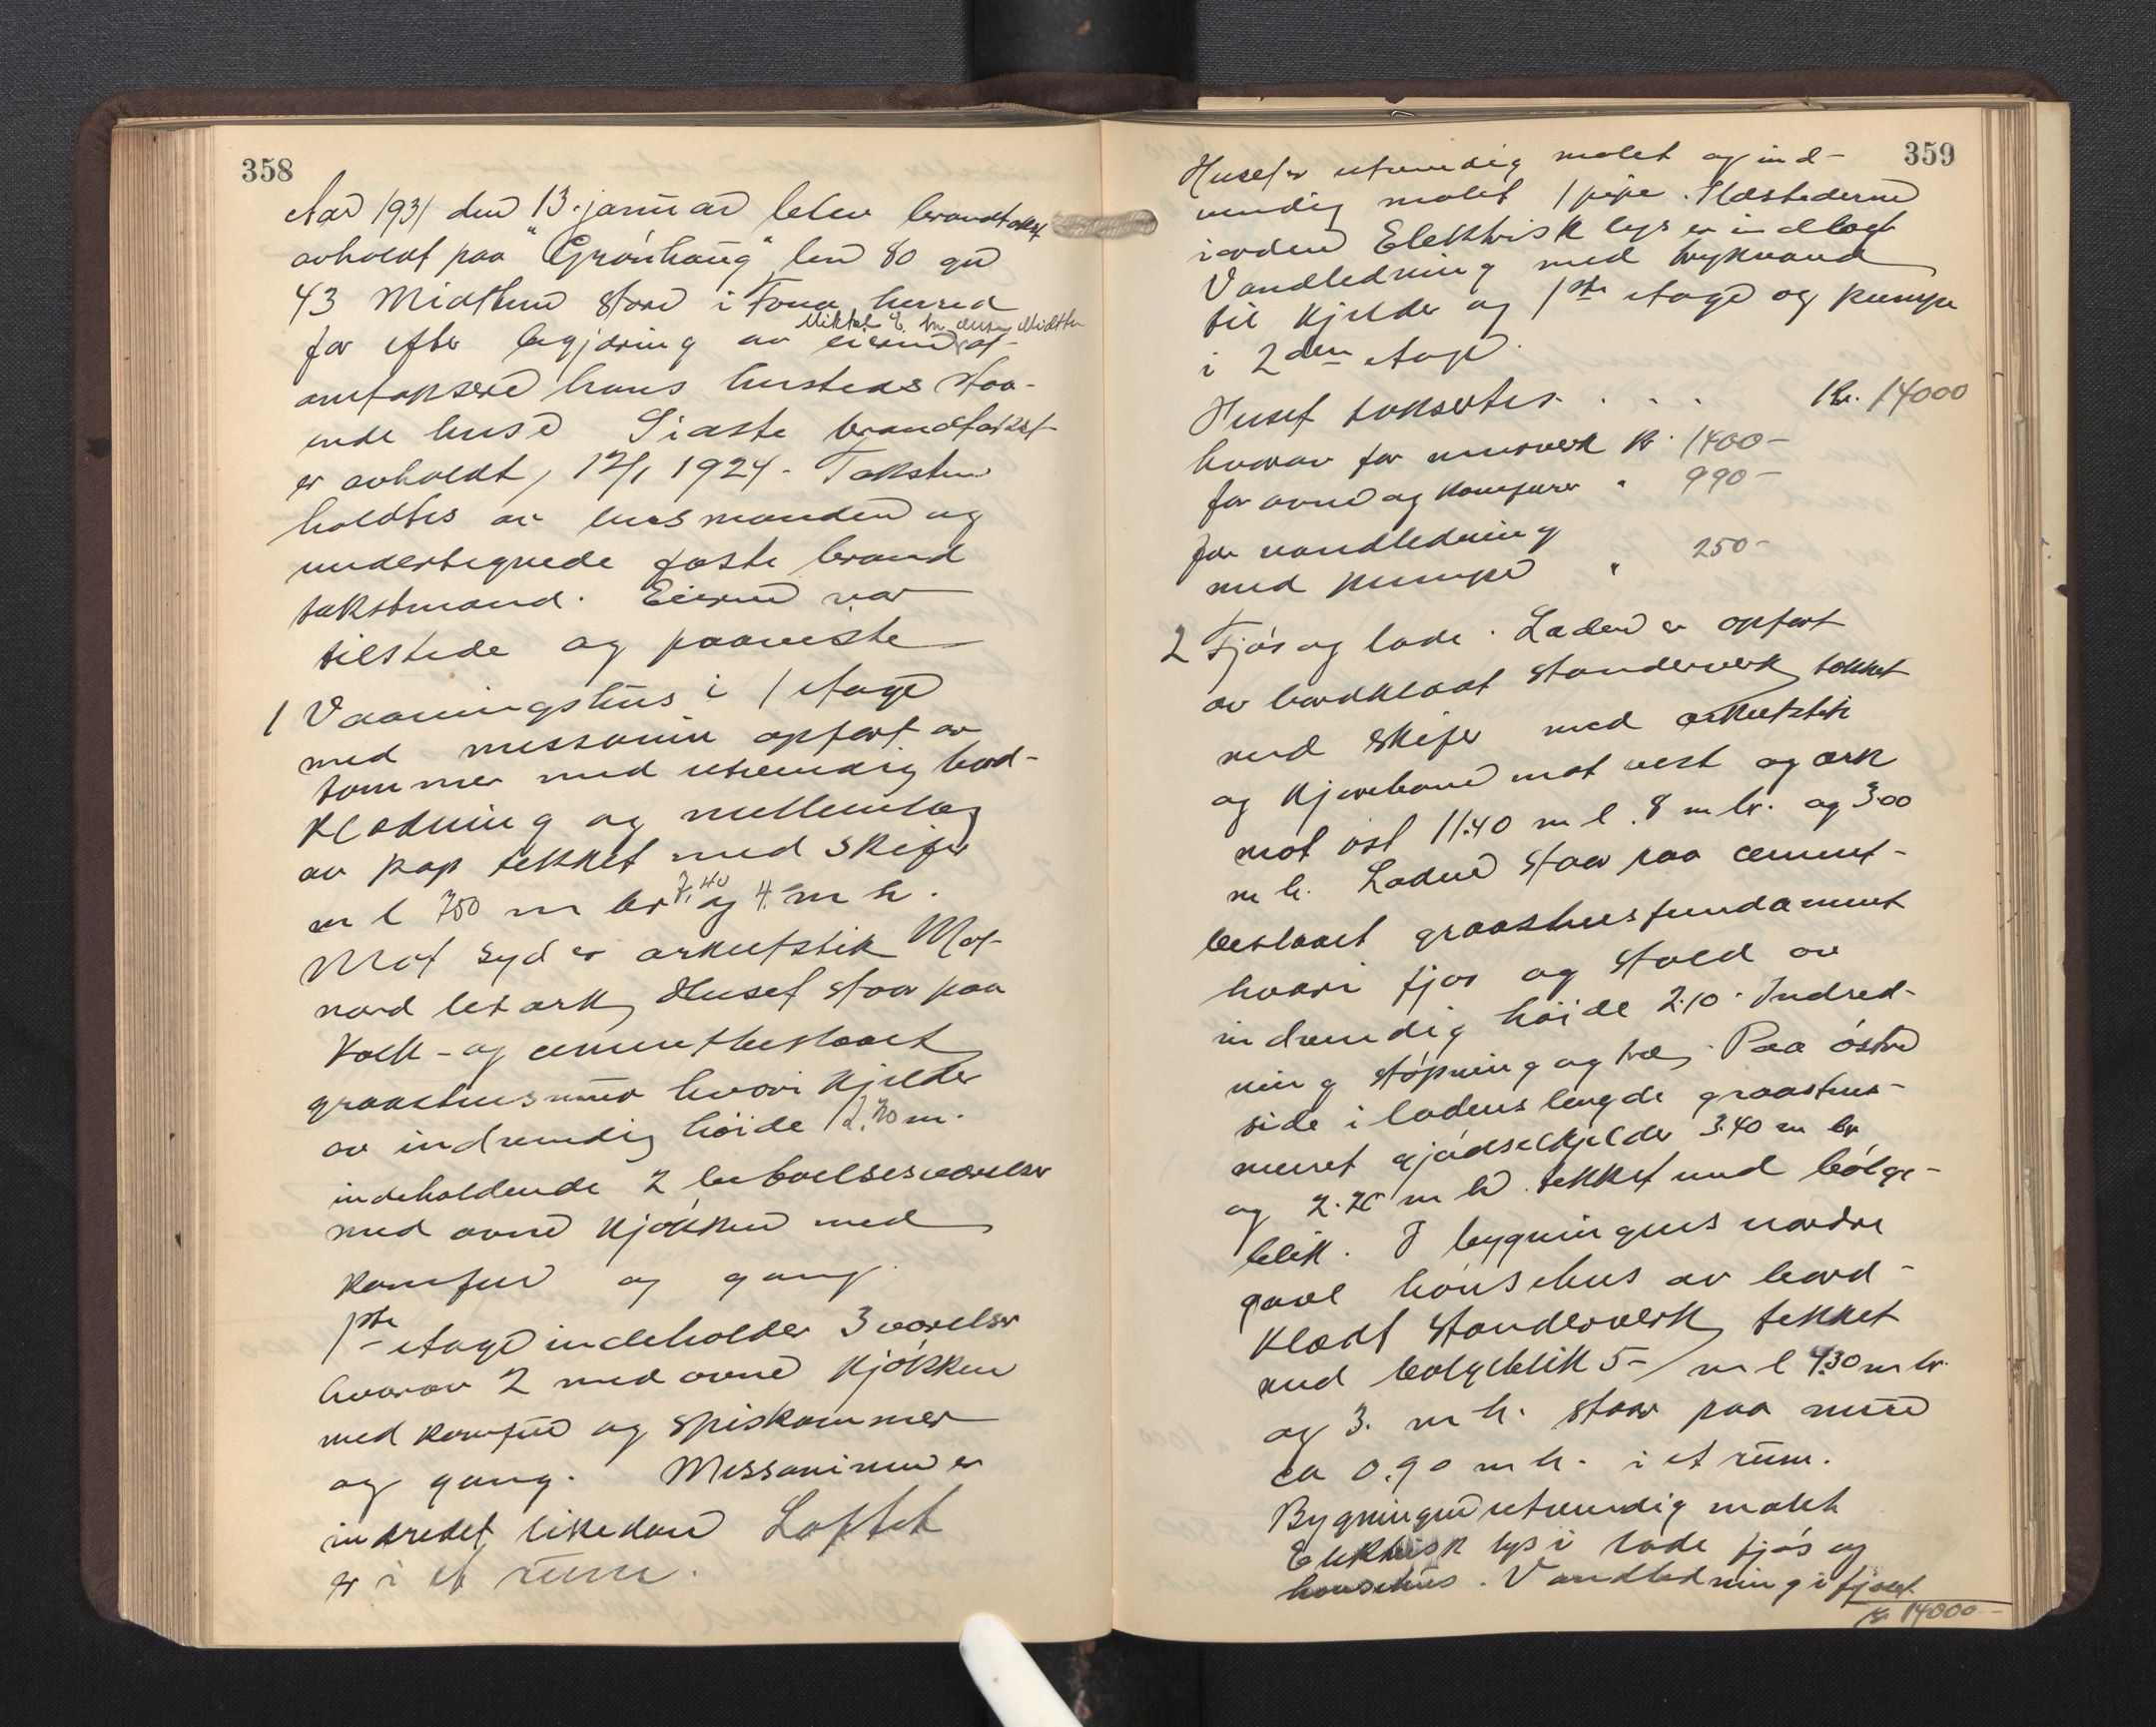 358
Aar 1931 den 13. januar blev brandtakst
avholdt paa "Grønhaug" bnr 80 gnr
43 Midthun store i Fana herred
for efter begjæring av eieren at
omtaksere hans husteds staa-
ende huse Siste brandtakst
er avholdt, 12/1 1924. Taksten
holdtes av lensmanden og
undertegnede faste brand
takstmænd. Eieren var
tilstede og paaviste
1 Vaaningshus i 1 etage
med messanin opført av
tømmer med utvendig bord-
klædning og mellemlag
av pap tekket med skifer
m l 750 m br 7.40 og 4. m h.
Mot syd er arkutstik Mot
nord let ark, Huset staar paa
kalk- og cementbeslaaet
graastensmur hvori kjelder
av indvendig høide 2.20 m.
indeholdende 2 beboelsesværelser
med ovne kjøkken med
komfur og gang.
1ste etage indeholder 3 værelser
hvorav 2 med ovne kjøkken
med komfur og spiskammer
og gang. Messaninen er
indredet likedan Loftet
er i et rum.
359
Huset er utvendig malet og ind-
vendig malet 1 pipe. Ildstederne
i orden Elektrisk lys er indlagt
Vandledning med trykvand
til kjelder og 1ste etage og pumpe
i 2den etage.
Huset takseres . . . Kr. 14000
hvorav for murverk kr. 1400-
for ovne og komfurer " 990-
for vandledning
med pumpe " 250-
2 Fjøs og lade. Laden er opført
av bordklædt standerverk, tekket
med skifer med arkutstik
og kjørebane mot vest og ark
mot øst 11.40 m l. 8 m br. og 3.00
m h. Laden staar paa cement-
beslaaet graastensfundament
hvori fjøs og stald av
indvendig høide 2.10. Indred-
ning støpning og træ. Paa østre
side i ladens lengde graastens-
muret gjødselkjelder 3.40 m br
og 2.20 m h. tekket med bølge-
blik. I bygningens nordre
gavl hønsehus av bord-
klædt standerverk, tekket
med bølgeblik 5- m l 4.30 m br.
og 3. m h. staar paa mur
ca 0.90 m h. i et rum.
Bygningen utvendig malet
Elektrisk lys i lade fjøs og
hønsehus. Vandledning i fjøset
kr 14000-